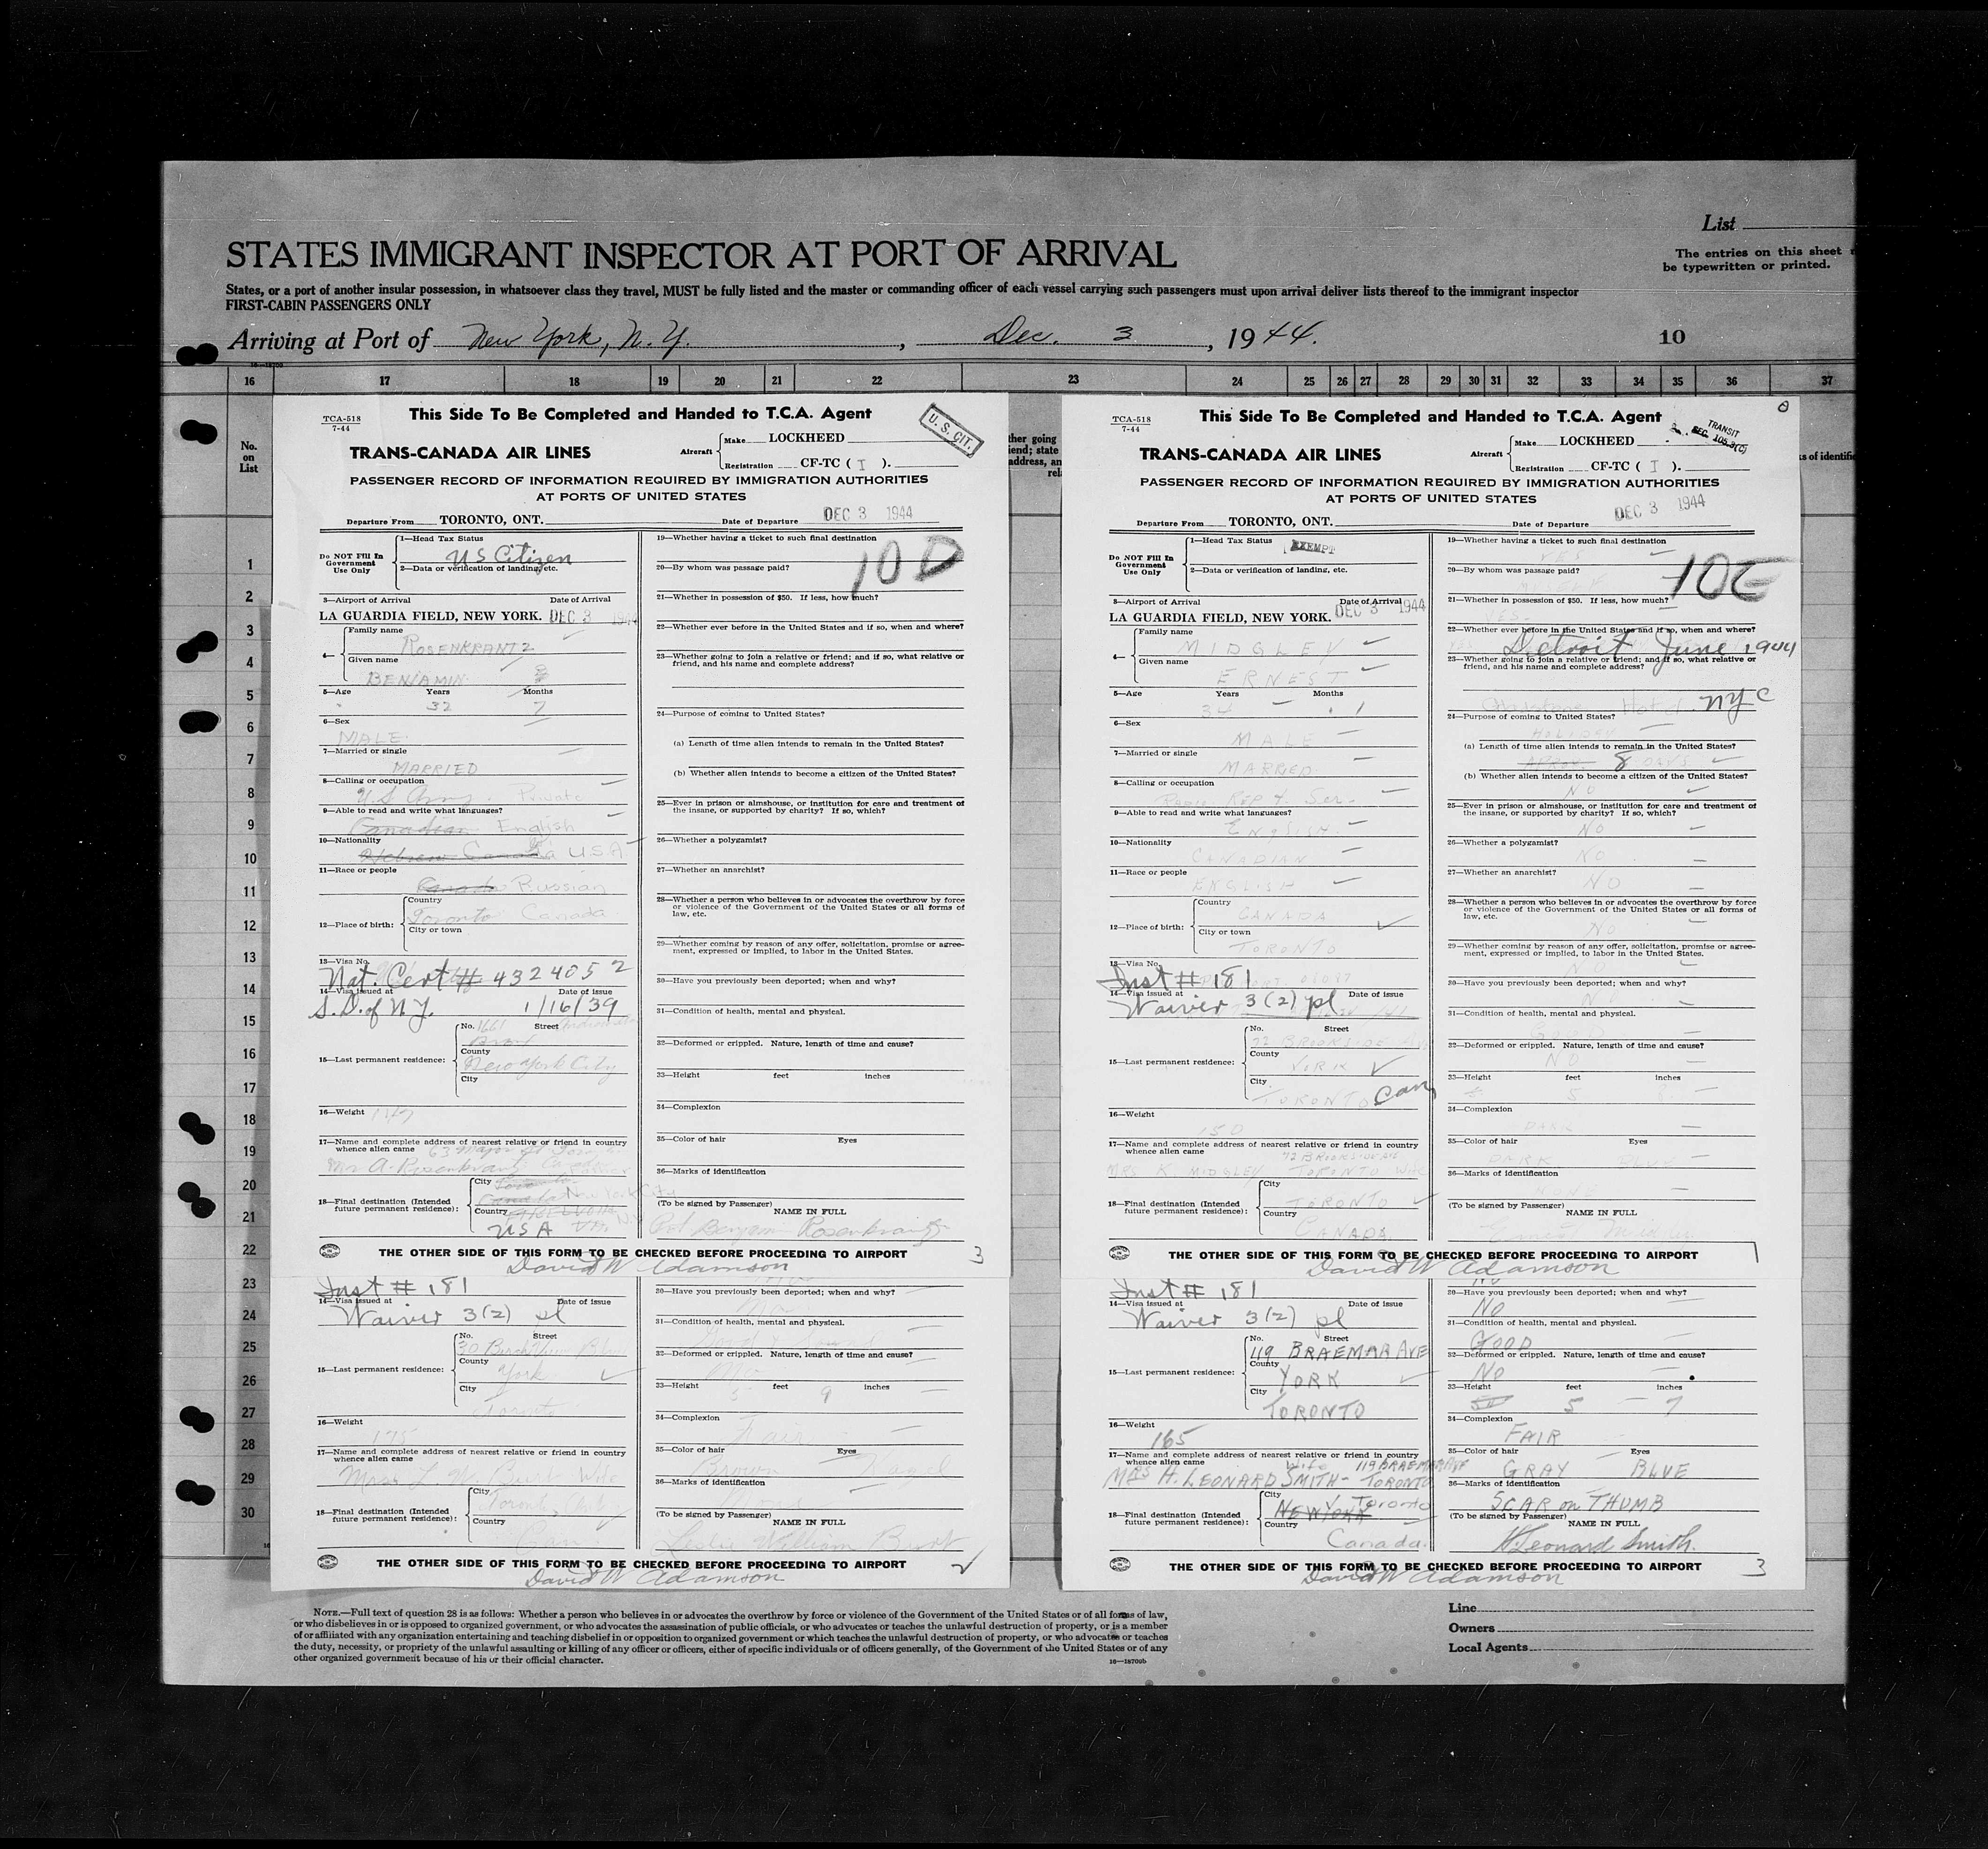 List
STATES IMMIGRANT INSPECTOR AT PORT OF ARRIVAL
The entries on this sheet
be typewritten or printed.
States, or a port of another insular possession, in whatsoever class they travel, MUST be fully listed and the master or commanding officer of each vessel carrying such passengers must upon arrival deliver lists thereof to the immigrant inspector
FIRST-CABIN PASSENGERS ONLY
Arriving at Port of New York, N.Y., Dec. 3, 1944.
10
16 17 18 19 20 21 22 23 24 25 26 27 28 29 30 31 32 33 34 35 36 37
No.
on
List
1
2
3
4
5
6
7
8
9
10
11
12
13
14
15
16
17
18
19
20
21
22
23
24
25
26
27
28
29
30
TCA-518
7-44
This Side To Be Completed and Handed to T.C.A. Agent
U. S. CIT.
TRANS-CANADA AIR LINES
Aircraft
Make LOCKHEED
Registration CF-TC ( I ).
PASSENGER RECORD OF INFORMATION REQUIRED BY IMMIGRATION AUTHORITIES
AT PORTS OF UNITED STATES
Departure From TORONTO, ONT.
Date of Departure DEC 3 1944
Do NOT Fill In
Government
Use Only
1—Head Tax Status
US Citizen
2—Data or verification of landing, etc.
3—Airport of Arrival Date of Arrival
LA GUARDIA FIELD, NEW YORK. DEC 3 1944
4—
Family name
ROSENKRANTZ
Given name
BENJAMIN
5—Age Years Months
32 7
6—Sex
MALE
7—Married or single
MARRIED
8—Calling or occupation
U.S Army Private
9—Able to read and write what languages?
Canadian English
10—Nationality
Hebrew Canada U.S.A
11—Race or people
Canada Russian
12—Place of birth:
Country
Toronto Canada
City or town
13—Visa No.
Nat. Cert # 4324052
14—Visa issued at Date of issue
S.D. of N.Y. 1/16/39
15—Last permanent residence:
No. 1661 Street
Bronx
County
New York City
City
16—Weight
147
17—Name and complete address of nearest relative or friend in country
whence alien came 63 Major St
Mr A. Rosenkrantz
18—Final destination (Intended
future permanent residence):
City
Canada New York City
Country
USA
19—Whether having a ticket to such final destination
10 D
20—By whom was passage paid?
21—Whether in possession of $50. If less, how much?
22—Whether ever before in the United States and if so, when and where?
23—Whether going to join a relative or friend; and if so, what relative or
friend, and his name and complete address?
24—Purpose of coming to United States?
(a) Length of time alien intends to remain in the United States?
(b) Whether alien intends to become a citizen of the United States?
25—Ever in prison or almshouse, or institution for care and treatment of
the insane, or supported by charity? If so, which?
26—Whether a polygamist?
27—Whether an anarchist?
28—Whether a person who believes in or advocates the overthrow by force
or violence of the Government of the United States or all forms of
law, etc.
29—Whether coming by reason of any offer, solicitation, promise or agree-
ment, expressed or implied, to labor in the United States.
30—Have you previously been deported; when and why?
31—Condition of health, mental and physical.
32—Deformed or crippled. Nature, length of time and cause?
33—Height feet inches
34—Complexion
35—Color of hair Eyes
36—Marks of identification
(To be signed by Passenger)
NAME IN FULL
Benjamin Rosenkrantz
THE OTHER SIDE OF THIS FORM TO BE CHECKED BEFORE PROCEEDING TO AIRPORT
David W Adamson
3
Inst # 181
14—Visa issued at Date of issue
Waiver 3(2) pl
15—Last permanent residence:
No. Street
30
County
York
City
Toronto
16—Weight
175
17—Name and complete address of nearest relative or friend in country
whence alien came
Mrs. L. W. Burt Wife
18—Final destination (Intended
future permanent residence):
City
Toronto
Country
Can
30—Have you previously been deported; when and why?
No
31—Condition of health, mental and physical.
32—Deformed or crippled. Nature, length of time and cause?
33—Height feet inches
5 9
34—Complexion
Fair
35—Color of hair Eyes
Brown Hazel
36—Marks of identification
None
(To be signed by Passenger)
NAME IN FULL
Leslie William Burt
THE OTHER SIDE OF THIS FORM TO BE CHECKED BEFORE PROCEEDING TO AIRPORT
David W Adamson
2
ther going
iend; state
address, an
rel
TCA-518
7-44
This Side To Be Completed and Handed to T.C.A. Agent
TRANSIT
SEC. 105.3(C)
TRANS-CANADA AIR LINES
Aircraft
Make LOCKHEED
Registration CF-TC ( I ).
PASSENGER RECORD OF INFORMATION REQUIRED BY IMMIGRATION AUTHORITIES
AT PORTS OF UNITED STATES
Departure From TORONTO, ONT.
Date of Departure DEC 3 1944
Do NOT Fill In
Government
Use Only
1—Head Tax Status
EXEMPT
2—Data or verification of landing, etc.
3—Airport of Arrival Date of Arrival
LA GUARDIA FIELD, NEW YORK. DEC 3 1944
4—
Family name
MIDGLEY
Given name
ERNEST
5—Age Years Months
34 1
6—Sex
MALE
7—Married or single
MARRIED
8—Calling or occupation
RADIO REP & Ser.
9—Able to read and write what languages?
ENGLISH
10—Nationality
CANADIAN
11—Race or people
ENGLISH
12—Place of birth:
Country
CANADA
City or town
TORONTO
13—Visa No.
Inst # 181
14—Visa issued at Date of issue
Waiver 3(2) pl
15—Last permanent residence:
No. Street
72 BROOKSIDE AVE
County
YORK
City
TORONTO Can
16—Weight
150
17—Name and complete address of nearest relative or friend in country
whence alien came 72 BROOKSIDE AVE
MRS K. MIDGLEY TORONTO WIFE
18—Final destination (Intended
future permanent residence):
City
TORONTO
Country
CANADA
19—Whether having a ticket to such final destination
YES
10E
20—By whom was passage paid?
21—Whether in possession of $50. If less, how much?
YES
22—Whether ever before in the United States and if so, when and where?
Detroit June 1944
23—Whether going to join a relative or friend; and if so, what relative or
friend, and his name and complete address?
Hotel NYC
24—Purpose of coming to United States?
HOLIDAY
(a) Length of time alien intends to remain in the United States?
8 DAYS
(b) Whether alien intends to become a citizen of the United States?
NO
25—Ever in prison or almshouse, or institution for care and treatment of
the insane, or supported by charity? If so, which?
NO
26—Whether a polygamist?
NO
27—Whether an anarchist?
NO
28—Whether a person who believes in or advocates the overthrow by force
or violence of the Government of the United States or all forms of
law, etc.
NO
29—Whether coming by reason of any offer, solicitation, promise or agree-
ment, expressed or implied, to labor in the United States.
NO
30—Have you previously been deported; when and why?
NO
31—Condition of health, mental and physical.
32—Deformed or crippled. Nature, length of time and cause?
NO
33—Height feet inches
5
34—Complexion
DARK
35—Color of hair Eyes
DARK BLUE
36—Marks of identification
NONE
(To be signed by Passenger)
NAME IN FULL
Ernest Midgley
THE OTHER SIDE OF THIS FORM TO BE CHECKED BEFORE PROCEEDING TO AIRPORT
David W Adamson
1
Inst # 181
14—Visa issued at Date of issue
Waiver 3(2) pl
15—Last permanent residence:
No. Street
119 BRAEMAR AVE
County
YORK
City
TORONTO
16—Weight
165
17—Name and complete address of nearest relative or friend in country
whence alien came wife 119 BRAEMAR AVE
MRS H. LEONARD SMITH - TORONTO
18—Final destination (Intended
future permanent residence):
City
NEW YORK Toronto
Country
Canada
30—Have you previously been deported; when and why?
NO
31—Condition of health, mental and physical.
GOOD
32—Deformed or crippled. Nature, length of time and cause?
NO
33—Height feet inches
5 7
34—Complexion
FAIR
35—Color of hair Eyes
GRAY BLUE
36—Marks of identification
SCAR on THUMB
(To be signed by Passenger)
NAME IN FULL
H Leonard Smith.
THE OTHER SIDE OF THIS FORM TO BE CHECKED BEFORE PROCEEDING TO AIRPORT
David W Adamson
3
s of identific
NOTE.—Full text of question 28 is as follows: Whether a person who believes in or advocates the overthrow by force or violence of the Government of the United States or of all forms of law,
or who disbelieves in or is opposed to organized government, or who advocates the assassination of public officials, or who advocates or teaches the unlawful destruction of property, or is a member
of or affiliated with any organization entertaining and teaching disbelief in or opposition to organized government or which teaches the unlawful destruction of property, or who advocates or teaches
the duty, necessity, or propriety of the unlawful assaulting or killing of any officer or officers, either of specific individuals or of officers generally, of the Government of the United States or of any
other organized government because of his or their official character.
16—18700b
Line
Owners
Local Agents